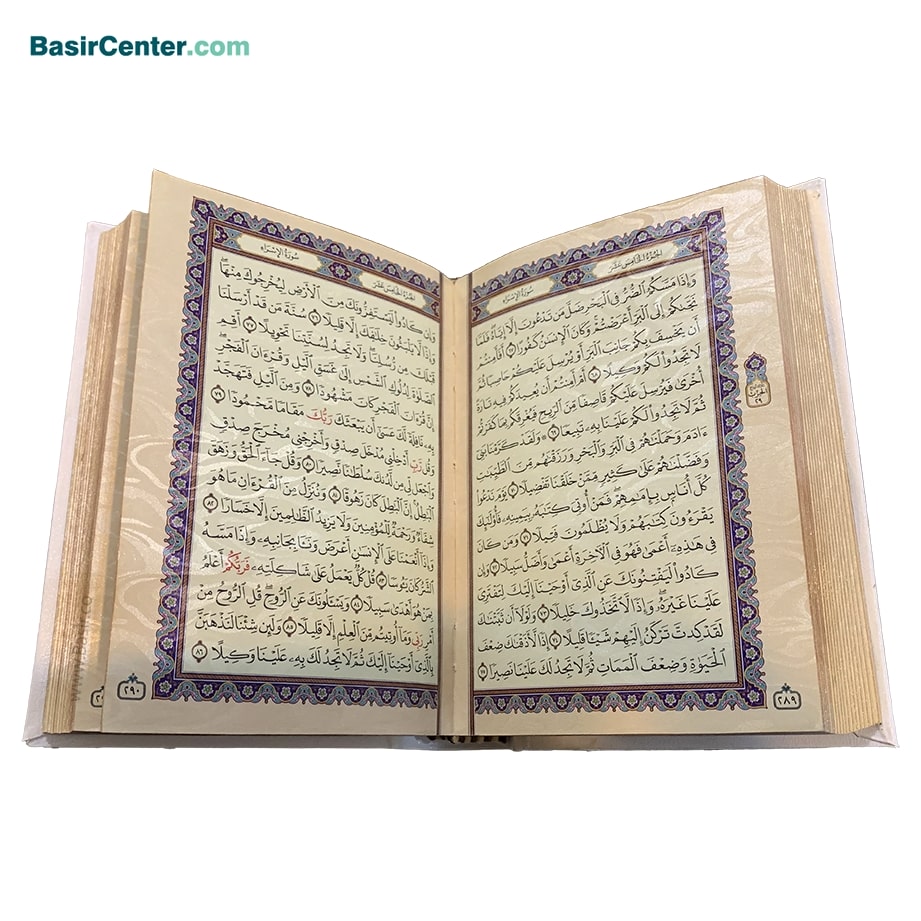 BasirCenter.com
الجُزءُ الخَامِسَ عَشَرَ سُورَةُ الإِسرَاء
وَإِذَا مَسَّكُمُ ٱلضُّرُّ فِي ٱلْبَحْرِ ضَلَّ مَن تَدْعُونَ إِلَّآ إِيَّاهُ فَلَمَّا
نَجَّىٰكُمْ إِلَى ٱلْبَرِّ أَعْرَضْتُمْ وَكَانَ ٱلْإِنسَٰنُ كَفُورًا ٦٧ أَفَأَمِنتُمْ
أَن يَخْسِفَ بِكُمْ جَانِبَ ٱلْبَرِّ أَوْ يُرْسِلَ عَلَيْكُمْ حَاصِبًا ثُمَّ
لَا تَجِدُوا۟ لَكُمْ وَكِيلًا ٦٨ أَمْ أَمِنتُمْ أَن يُعِيدَكُمْ فِيهِ تَارَةً
أُخْرَىٰ فَيُرْسِلَ عَلَيْكُمْ قَاصِفًا مِّنَ ٱلرِّيحِ فَيُغْرِقَكُم بِمَا كَفَرْتُمْ
ثُمَّ لَا تَجِدُوا۟ لَكُمْ عَلَيْنَا بِهِۦ تَبِيعًا ٦٩ وَلَقَدْ كَرَّمْنَا بَنِىٓ
ءَادَمَ وَحَمَلْنَٰهُمْ فِي ٱلْبَرِّ وَٱلْبَحْرِ وَرَزَقْنَٰهُم مِّنَ ٱلطَّيِّبَٰتِ
وَفَضَّلْنَٰهُمْ عَلَىٰ كَثِيرٍ مِّمَّنْ خَلَقْنَا تَفْضِيلًا ٧٠ يَوْمَ نَدْعُوا۟
كُلَّ أُنَاسٍۭ بِإِمَٰمِهِمْ فَمَنْ أُوتِيَ كِتَٰبَهُۥ بِيَمِينِهِۦ فَأُو۟لَٰٓئِكَ
يَقْرَءُونَ كِتَٰبَهُمْ وَلَا يُظْلَمُونَ فَتِيلًا ٧١ وَمَن كَانَ
فِي هَٰذِهِۦٓ أَعْمَىٰ فَهُوَ فِي ٱلْءَاخِرَةِ أَعْمَىٰ وَأَضَلُّ سَبِيلًا ٧٢ وَإِن
كَادُوا۟ لَيَفْتِنُونَكَ عَنِ ٱلَّذِىٓ أَوْحَيْنَآ إِلَيْكَ لِتَفْتَرِىَ
عَلَيْنَا غَيْرَهُۥ وَإِذًا لَّٱتَّخَذُوكَ خَلِيلًا ٧٣ وَلَوْلَآ أَن ثَبَّتْنَٰكَ
لَقَدْ كِدتَّ تَرْكَنُ إِلَيْهِمْ شَيْـًٔا قَلِيلًا ٧٤ إِذًا لَّأَذَقْنَٰكَ ضِعْفَ
ٱلْحَيَوٰةِ وَضِعْفَ ٱلْمَمَاتِ ثُمَّ لَا تَجِدُ لَكَ عَلَيْنَا نَصِيرًا ٧٥
٢٨٩
سُورَةُ الإِسرَاء الجُزءُ الخَامِسَ عَشَرَ
وَإِن كَادُوا۟ لَيَسْتَفِزُّونَكَ مِنَ ٱلْأَرْضِ لِيُخْرِجُوكَ مِنْهَا
وَإِذًا لَّا يَلْبَثُونَ خِلَٰفَكَ إِلَّا قَلِيلًا ٧٦ سُنَّةَ مَن قَدْ أَرْسَلْنَا
قَبْلَكَ مِن رُّسُلِنَا وَلَا تَجِدُ لِسُنَّتِنَا تَحْوِيلًا ٧٧ أَقِمِ
ٱلصَّلَوٰةَ لِدُلُوكِ ٱلشَّمْسِ إِلَىٰ غَسَقِ ٱلَّيْلِ وَقُرْءَانَ ٱلْفَجْرِ
إِنَّ قُرْءَانَ ٱلْفَجْرِ كَانَ مَشْهُودًا ٧٨ وَمِنَ ٱلَّيْلِ فَتَهَجَّدْ
بِهِۦ نَافِلَةً لَّكَ عَسَىٰٓ أَن يَبْعَثَكَ رَبُّكَ مَقَامًا مَّحْمُودًا ٧٩
وَقُل رَّبِّ أَدْخِلْنِى مُدْخَلَ صِدْقٍ وَأَخْرِجْنِى مُخْرَجَ صِدْقٍ
وَٱجْعَل لِّى مِن لَّدُنكَ سُلْطَٰنًا نَّصِيرًا ٨٠ وَقُلْ جَآءَ ٱلْحَقُّ وَزَهَقَ
ٱلْبَٰطِلُ إِنَّ ٱلْبَٰطِلَ كَانَ زَهُوقًا ٨١ وَنُنَزِّلُ مِنَ ٱلْقُرْءَانِ مَا هُوَ
شِفَآءٌ وَرَحْمَةٌ لِّلْمُؤْمِنِينَ وَلَا يَزِيدُ ٱلظَّٰلِمِينَ إِلَّا خَسَارًا ٨٢
وَإِذَآ أَنْعَمْنَا عَلَى ٱلْإِنسَٰنِ أَعْرَضَ وَنَـَٔا بِجَانِبِهِۦ وَإِذَا مَسَّهُ
ٱلشَّرُّ كَانَ يَـُٔوسًا ٨٣ قُلْ كُلٌّ يَعْمَلُ عَلَىٰ شَاكِلَتِهِۦ فَرَبُّكُمْ أَعْلَمُ
بِمَنْ هُوَ أَهْدَىٰ سَبِيلًا ٨٤ وَيَسْـَٔلُونَكَ عَنِ ٱلرُّوحِ قُلِ ٱلرُّوحُ مِنْ
أَمْرِ رَبِّى وَمَآ أُوتِيتُم مِّنَ ٱلْعِلْمِ إِلَّا قَلِيلًا ٨٥ وَلَئِن شِئْنَا لَنَذْهَبَنَّ
بِٱلَّذِىٓ أَوْحَيْنَآ إِلَيْكَ ثُمَّ لَا تَجِدُ لَكَ بِهِۦ عَلَيْنَا وَكِيلًا ٨٦
٢٩٠